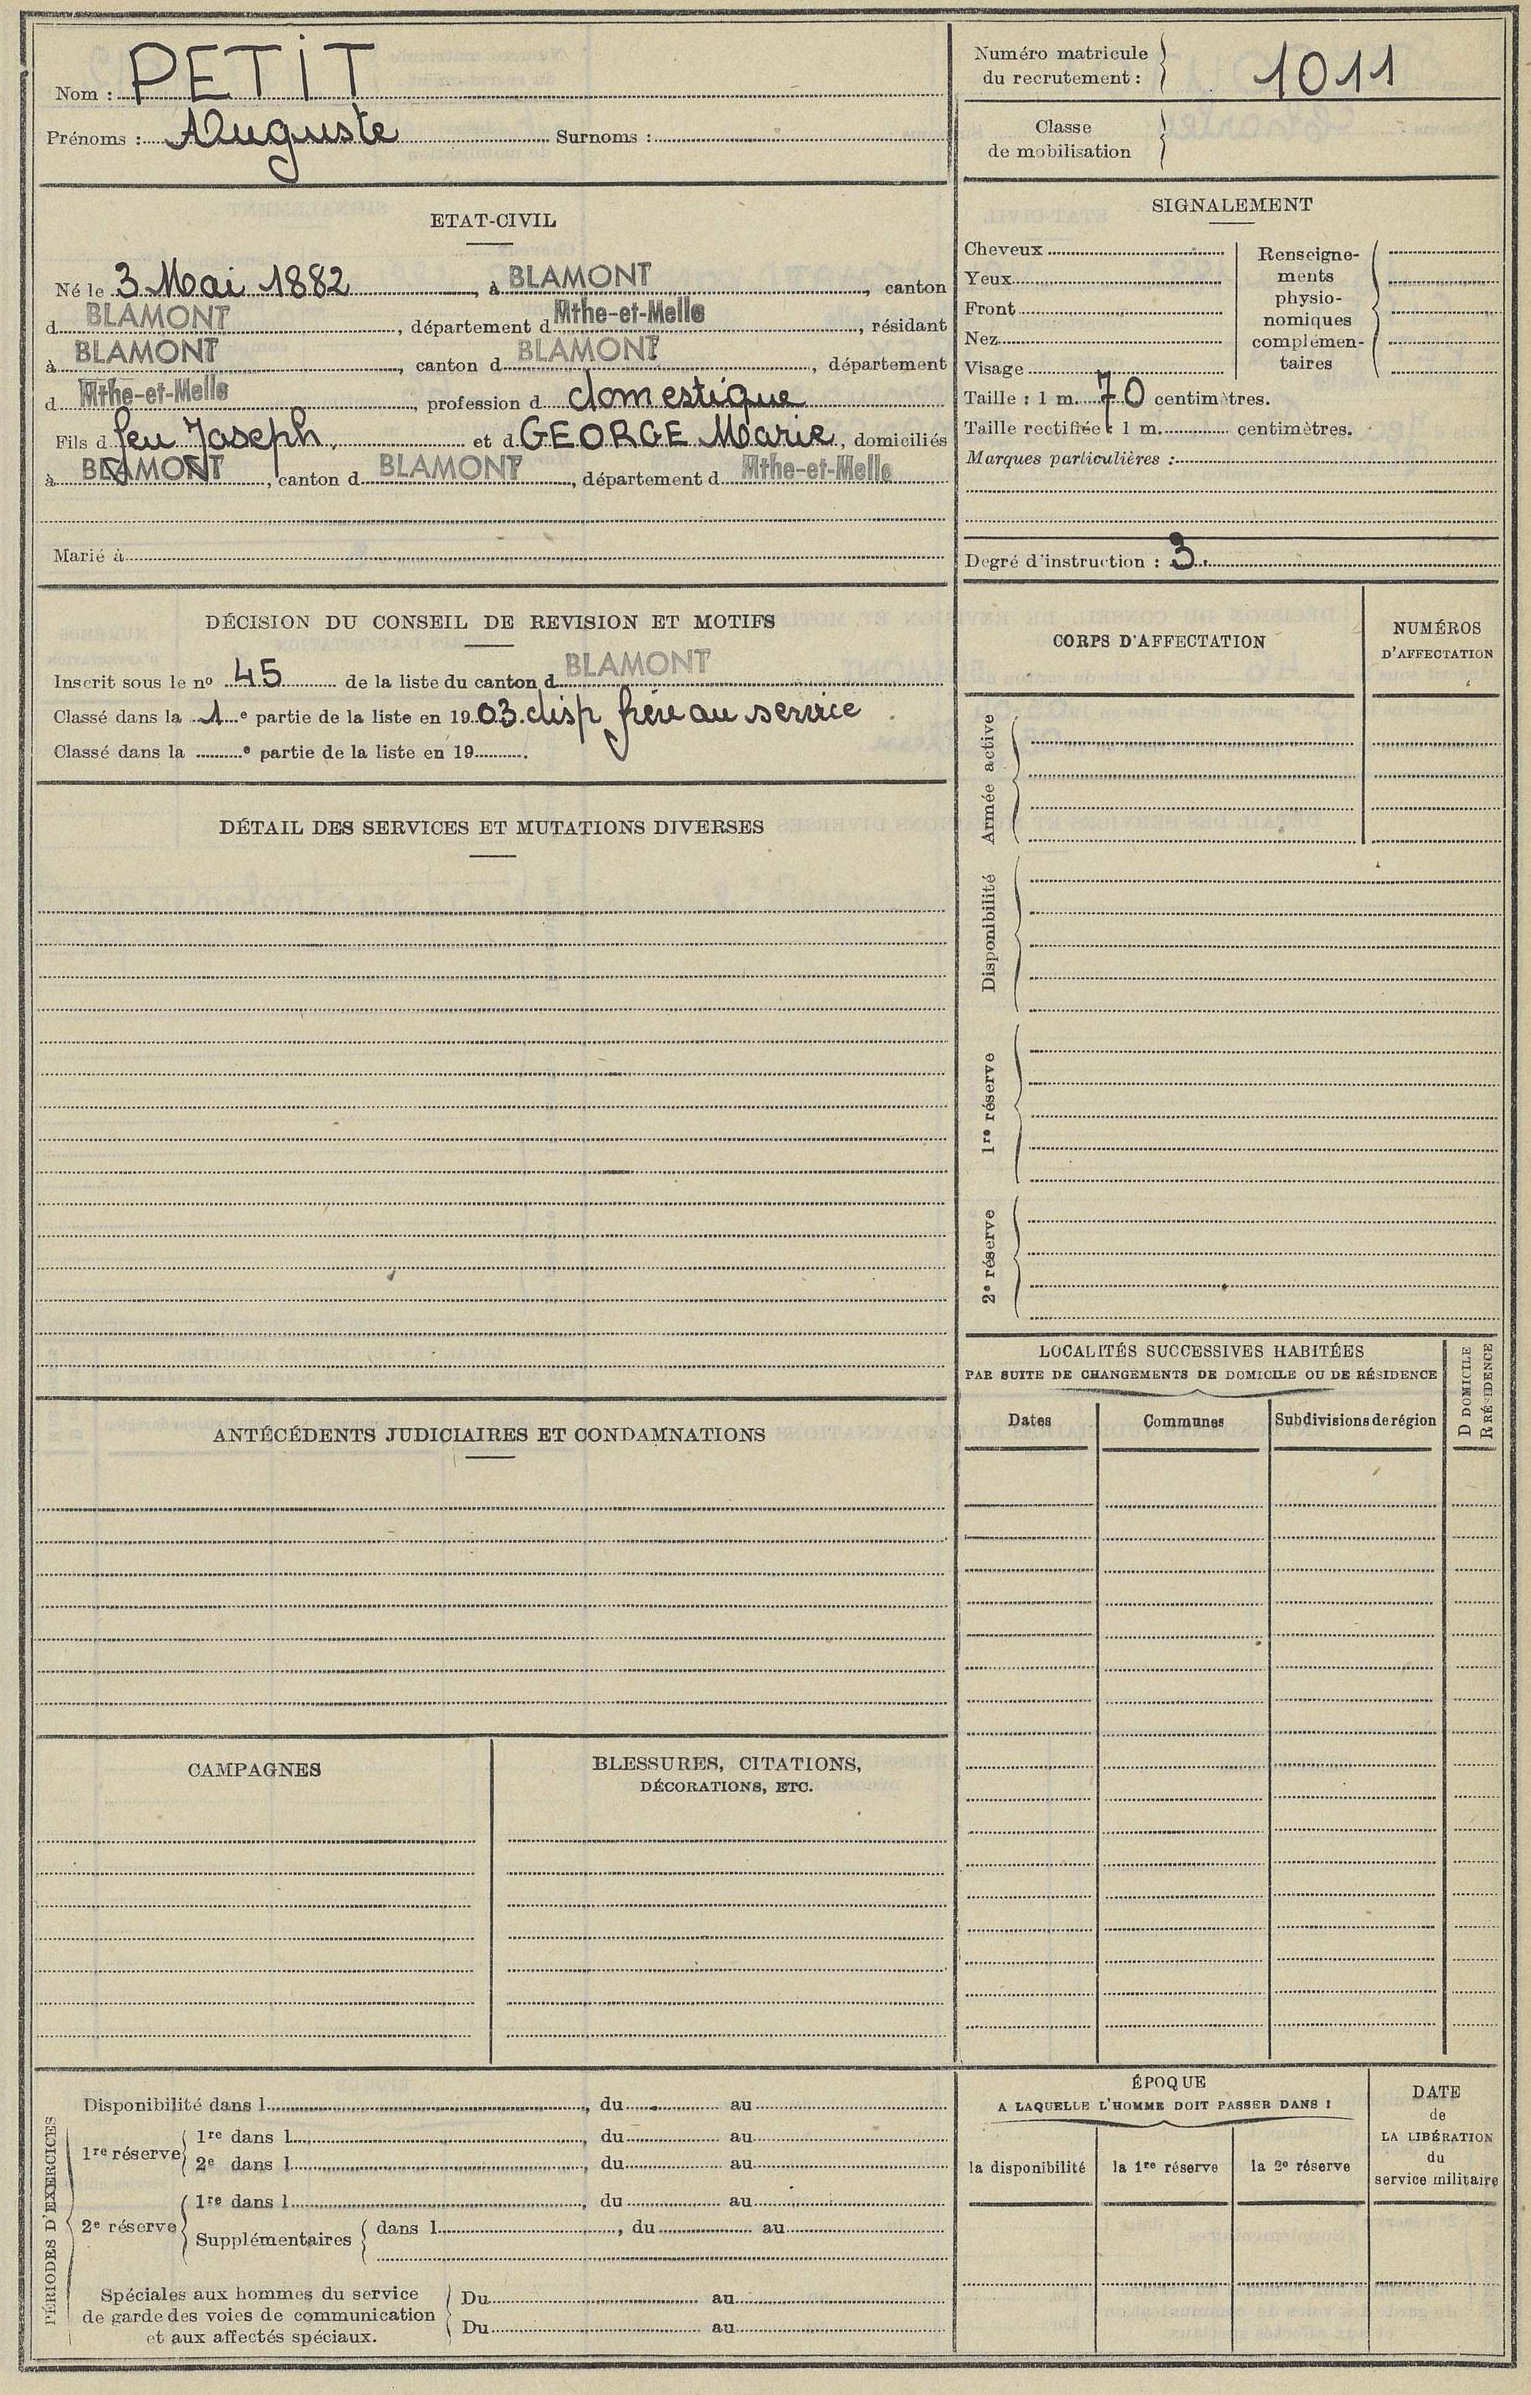 Nom : PETIT
Prénoms : Auguste Surnoms :
Numéro matricule
du recrutement : 1011
Classe
de mobilisation
ETAT-CIVIL
Né le 3 Mai 1882, à BLAMONT, canton
d BLAMONT, département d Mthe-et-Melle, résidant
à BLAMONT, canton d BLAMONT, département
d Mthe-et-Melle, profession d domestique
Fils d feu Joseph et d GEORGE Marie, domiciliés
à BLAMONT, canton d BLAMONT, département d Mthe-et-Melle
Marié à
SIGNALEMENT
Cheveux
Yeux
Front
Nez
Visage
Renseigne-
ments
physio-
nomiques
complémen-
taires
Taille : 1 m. 70 centimètres.
Taille rectifiée : 1 m. centimètres.
Marques particulières :
Degré d'instruction : 3.
DÉCISION DU CONSEIL DE REVISION ET MOTIFS
Inscrit sous le nº 45 de la liste du canton d BLAMONT
Classé dans la 1e partie de la liste en 1903. disp frère au service
Classé dans la e partie de la liste en 19 .
DÉTAIL DES SERVICES ET MUTATIONS DIVERSES
CORPS D'AFFECTATION
NUMÉROS
D'AFFECTATION
Armée active
Disponibilité
1re réserve
2e réserve
ANTÉCÉDENTS JUDICIAIRES ET CONDAMNATIONS
LOCALITÉS SUCCESSIVES HABITÉES
PAR SUITE DE CHANGEMENTS DE DOMICILE OU DE RÉSIDENCE
Dates Communes Subdivisions de région
D DOMICILE
R RÉSIDENCE
CAMPAGNES
BLESSURES, CITATIONS,
DÉCORATIONS, ETC.
PÉRIODES D'EXERCICES
Disponibilité dans l , du au
1re réserve
1re dans l , du au
2e dans l , du au
2e réserve
1re dans l , du au
Supplémentaires dans l , du au
Spéciales aux hommes du service
de garde des voies de communication
et aux affectés spéciaux.
Du au
Du au
ÉPOQUE
A LAQUELLE L'HOMME DOIT PASSER DANS :
la disponibilité la 1re réserve la 2e réserve
DATE
de
LA LIBÉRATION
du
service militaire